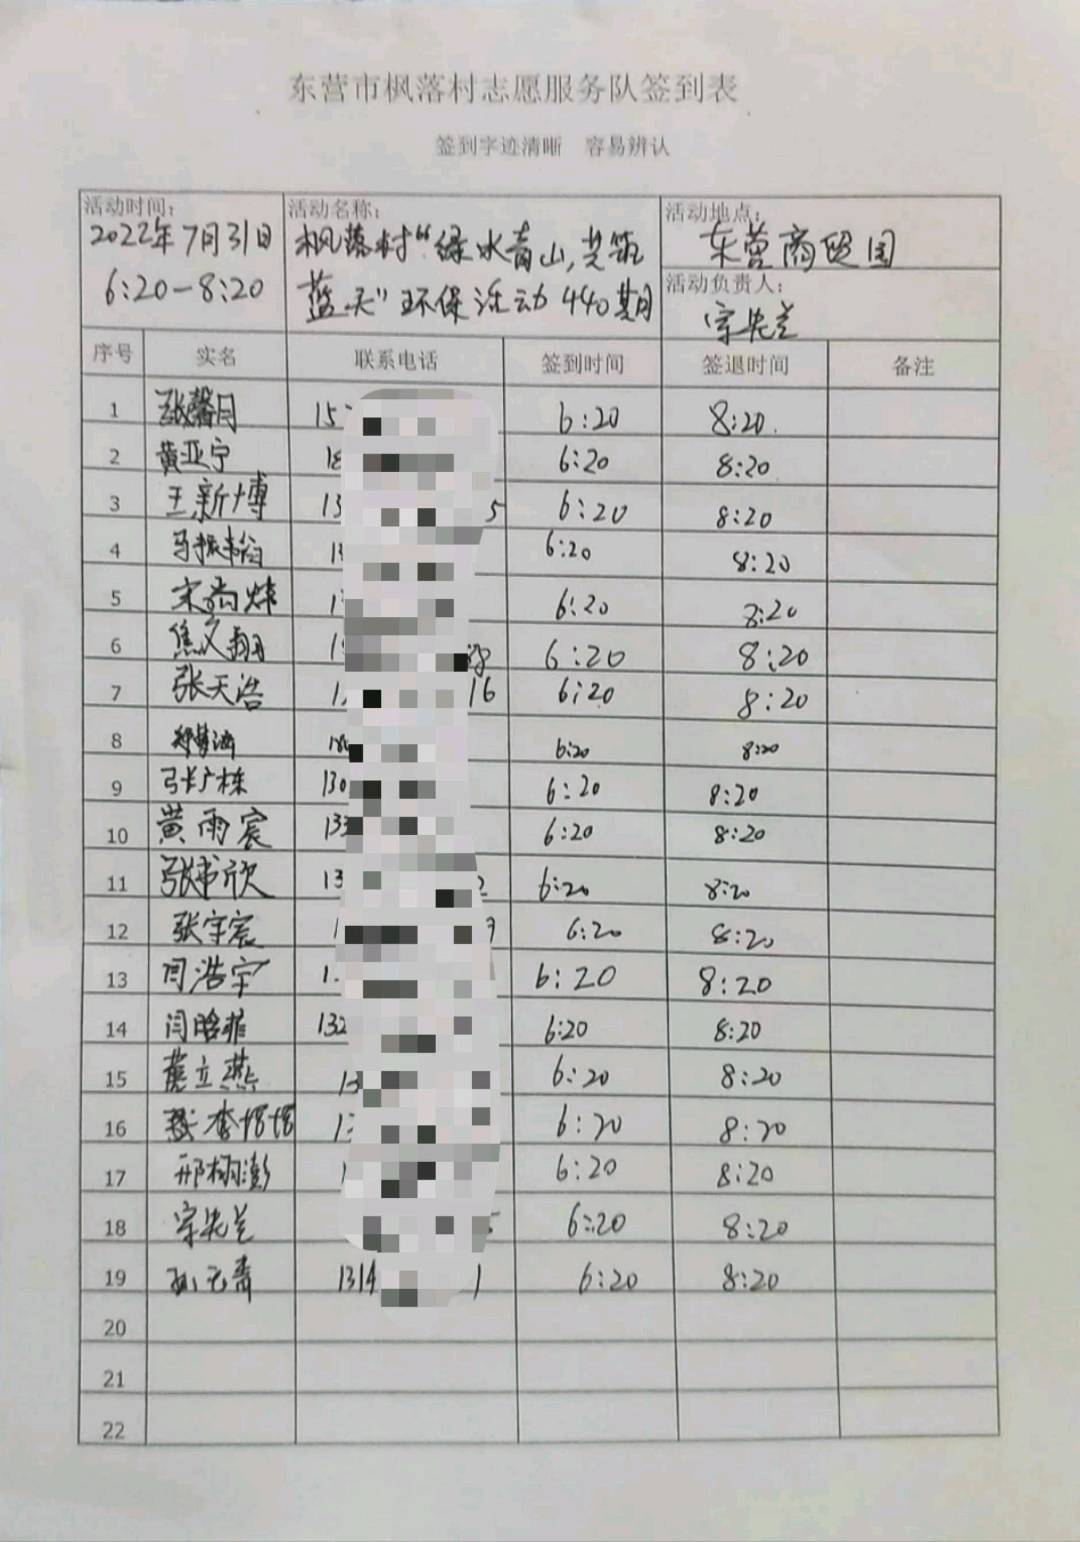 东营市枫落村志愿服务队签到表
签到字迹清晰 容易辨认
活动时间：
2022年7月31日
6:20-8:20
活动名称：
枫落村“绿水青山,共筑
蓝天”环保活动440期
活动地点：
东营商贸园
活动负责人：
宗先兰
序号 实名 联系电话 签到时间 签退时间 备注
1 张馨月 15 6:20 8:20
2 黄亚宁 18 6:20 8:20
3 王新博 13 5 6:20 8:20
4 6:20 8:20
5 宋尚炜 6:20 8:20
6 焦文翔 6:20 8:20
7 张天浩 16 6:20 8:20
8 6:20 8:20
9 张广栋 130 6:20 8:20
10 黄雨宸 133 6:20 8:20
11 张书欣 13 2 6:20 8:20
12 张宇宸 1 9 6:20 8:20
13 闫浩宇 6:20 8:20
14 闫晗菲 132 6:20 8:20
15 立燕 13 6:20 8:20
16 6:20 8:20
17 邢栩澎 1 6:20 8:20
18 宗先兰 5 6:20 8:20
19 孙元青 1314 1 6:20 8:20
20
21
22